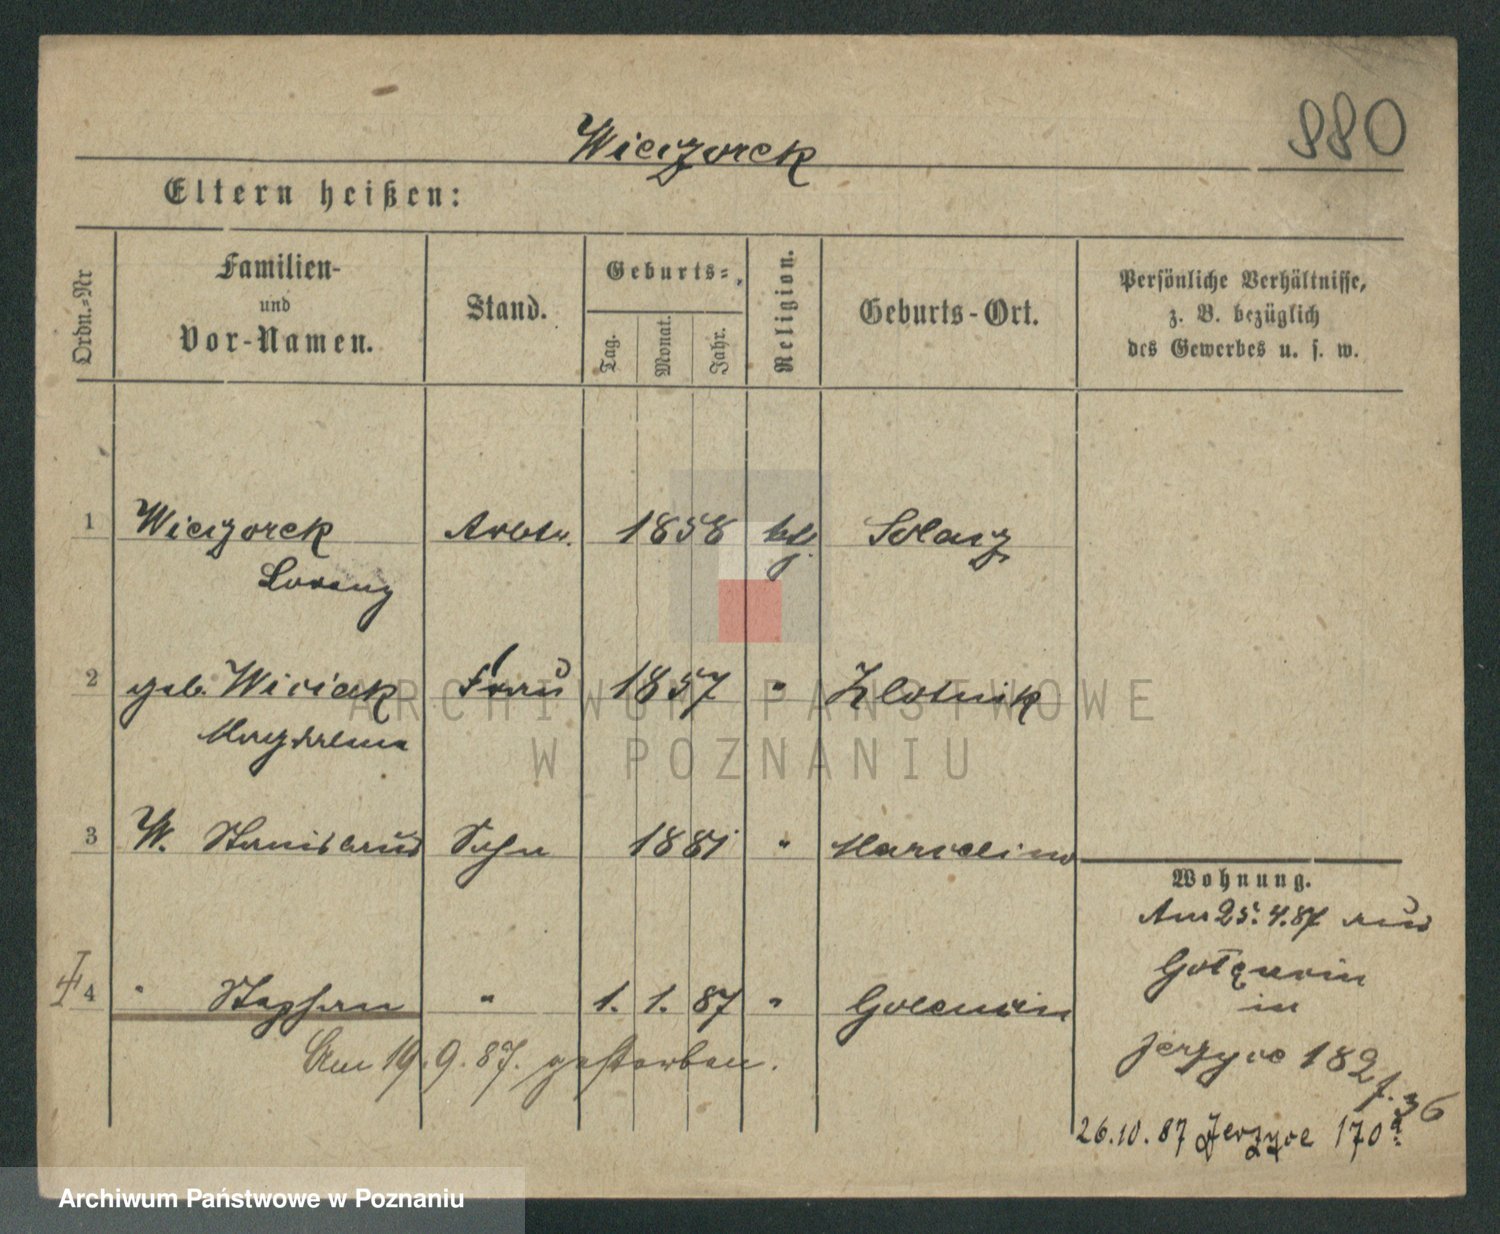 880
Wieczorek
Eltern heißen:
Ordn.=Nr
Familien-
und
Vor-Namen.
Stand.
Geburts=
Tag.
Monat.
Jahr.
Religion.
Geburts-Ort.
Persönliche Verhältnisse,
z. B. bezüglich
des Gewerbes u. s. w.
1 Wieczorek Arbtr. 1858 ktl.
Lorenz
2 geb. Wiciak Frau 1857 " Zlotnik
Magdalena
3 W. Stanislaus Sohn 1881 " Marcelino
Wohnung.
Am 25.4.87 aus
Golęcin
in
4 " Stephan " 1. 1. 87 " Golencin
Jerzyce 182
Am 19.9.87. gestorben.
26.10.87 Jerzyce 170
ARCHIWUM PAŃSTWOWE
W POZNANIU
Archiwum Państwowe w Poznaniu